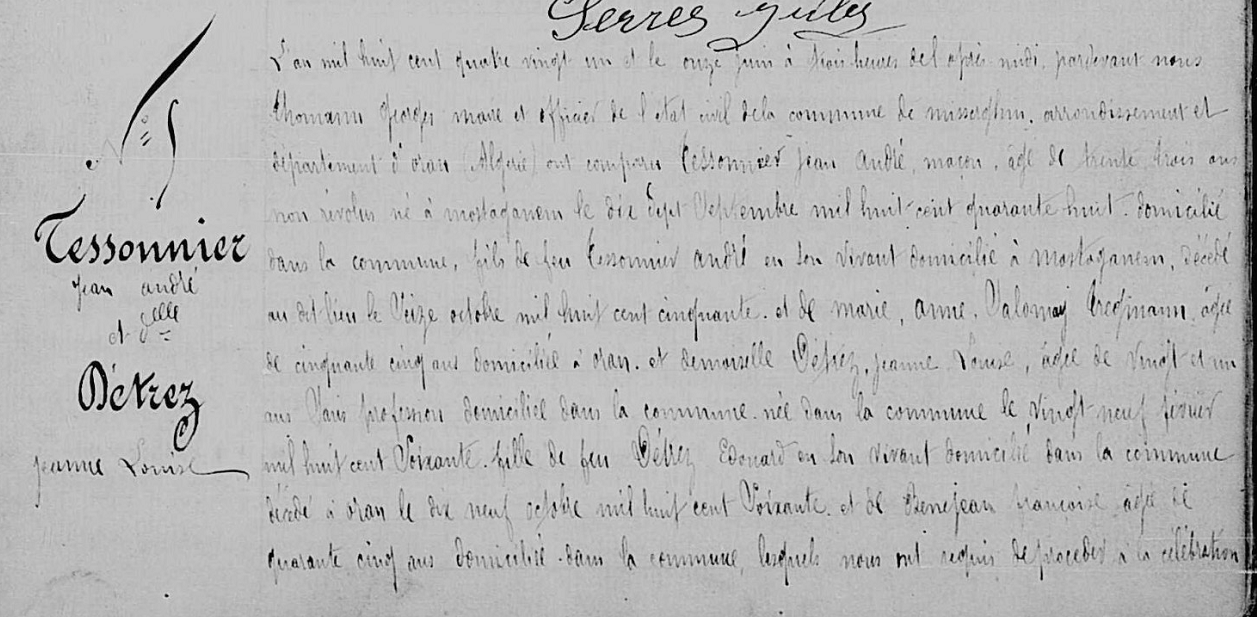 Serres Jules
N° 5
Tessonnier
jean andré
et d^elle
Détrez
jeanne Louise
L'an mil huit cent quatre vingt un et le onze juin à trois heures de l'après midi, pardevant nous
thomann Georges maire et officier de l'état civil de la commune de misserghin, arrondissement et
département d'oran (Algérie) ont comparu Tessonnier jean andré, maçon, âgé de trente trois ans
non révolus né à mostaganem le dix sept Septembre mil huit cent quarante huit. domicilié
dans la commune, fils de feu Tessonnier andré en son vivant domicilié à mostaganem, décédé
au dit lieu le Seize octobre mil huit cent cinquante. et de marie, anne, âgée
de cinquante cinq ans domiciliée à oran. et demoiselle Détrez, jeanne Louise, âgée de vingt et un
ans Sans profession domiciliée dans la commune. née dans la commune le vingt-neuf février
mil huit cent Soixante. fille de feu Détrez Edouard en Son vivant domicilié dans la commune
décédé à oran le dix neuf octobre mil huit cent Soixante. et de Benejean françoise âgée de
quarante cinq ans domiciliée dans la commune, lesquels nous ont requis de procéder à la célébration